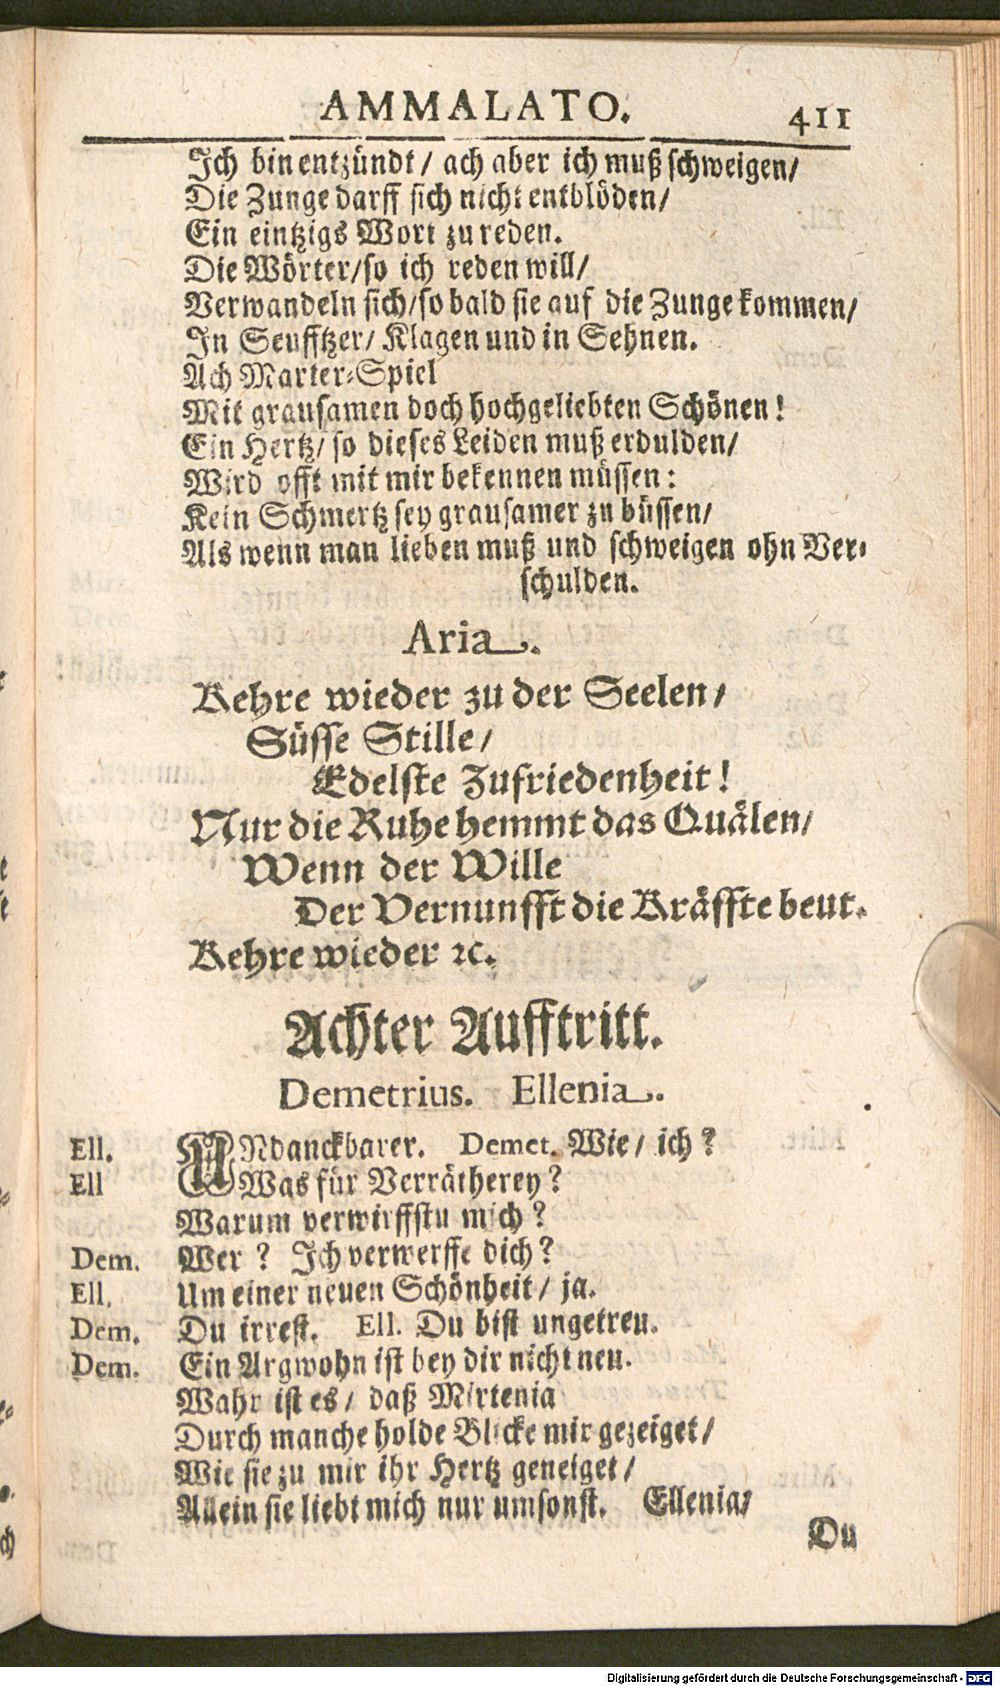 AMMALATO. 411
Ich bin entzündt / ach aber ich muß schweigen/
Die Zunge darff sich nicht entblöden/
Ein eintzigs Wort zu reden.
Die Wörter/so ich reden will/
Verwandeln sich/so bald sie auf die Zunge kommen/
In Seufftzer/ Klagen und in Sehnen.
Ach Marter-Spiel
Mit grausamen doch hochgeliebten Schönen!
Ein Hertz/ so dieses Leiden muß erdulden/
Wird offt mit mir bekennen müssen:
Kein Schmertz sey grausamer zu büssen/
Als wenn man lieben muß und schweigen ohn Ver-
schulden.
Aria.
Kehre wieder zu der Seelen/
Süsse Stille/
Edelste Zufriedenheit!
Nur die Ruhe hemmt das Quälen/
Wenn der Wille
Der Vernunfft die Kräffte beut.
Kehre wieder ꝛc.
Achter Aufftritt.
Demetrius. Ellenia.
Ell. UNdanckbarer. Demet. Wie/ ich?
Ell Was für Verrätherey?
Warum verwirffstu mich?
Dem. Wer? Ich verwerffe dich?
Ell. Um einer neuen Schönheit/ ja.
Dem. Du irrest. Ell. Du bist ungetreu.
Dem. Ein Argwohn ist bey dir nicht neu.
Wahr ist es/ daß Mirtenia
Durch manche holde Blicke mir gezeiget/
Wie sie zu mir ihr Hertz geneiget/
Allein sie liebt mich nur umsonst. Ellenia/
Du
Digitalisierung gefördert durch die Deutsche Forschungsgemeinschaft - DFG